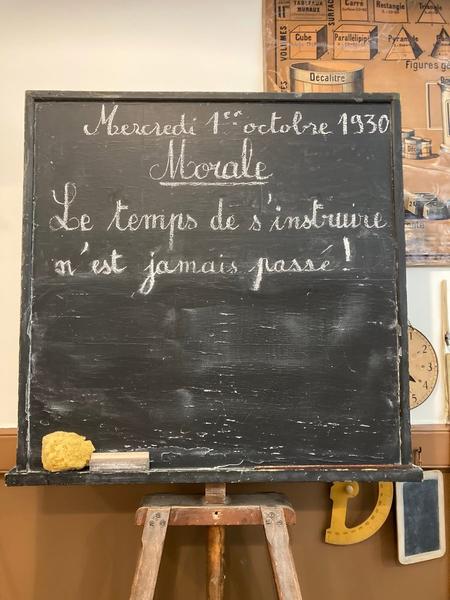 Mercredi 1er octobre 1930
Morale
Le temps de s'instruire
n'est jamais passé !
TABLEAUX
MURAUX
SURFAC
Carré
Rectangle
Triangle
VOLUMES
Cube
Parallélipip
Pyramide
Figures gé
Décalitre